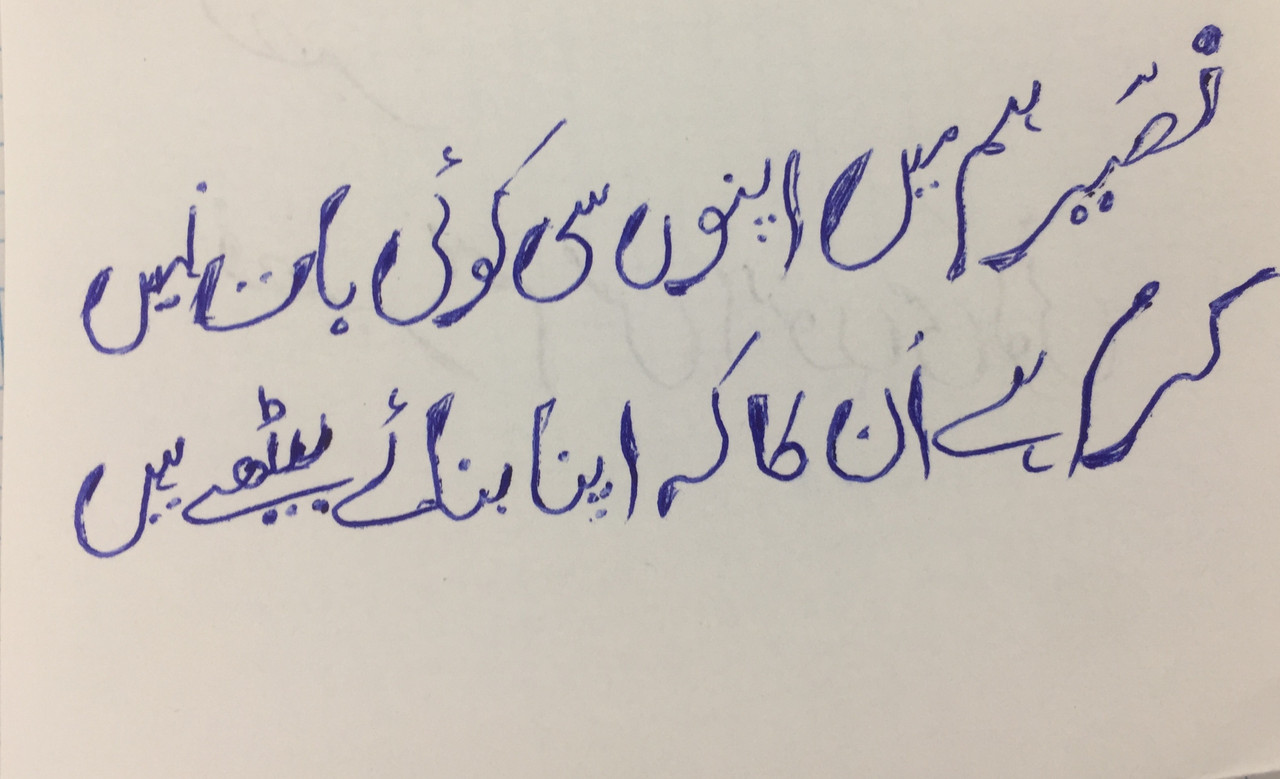 نصیر ہم میں اپنوں سی کوئی بات نہیں
کرم ہے اُن کا کہ اپنا بنائے بیٹھے ہیں